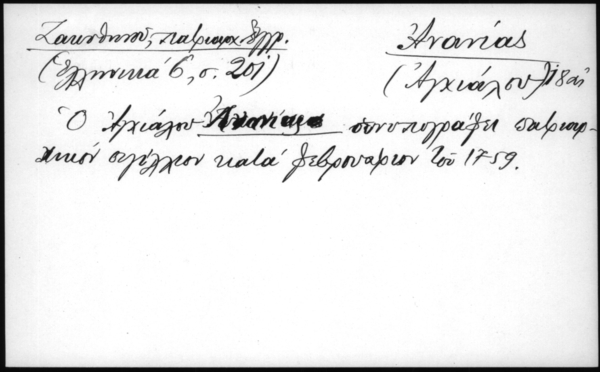 Ζακυθηνοῦ, πατριαρχ. ἔγγρ. Ἀνανίας
(Ἑλληνικά 6, σ. 201) (Ἀγχιάλου) 18 αἰ
Ὁ Ἀγχιάλου Ἀνανίας συνυπογράφει πατριαρ-
χικόν σιγίλλιον κατά φεβρουάριον τοῦ 1759.